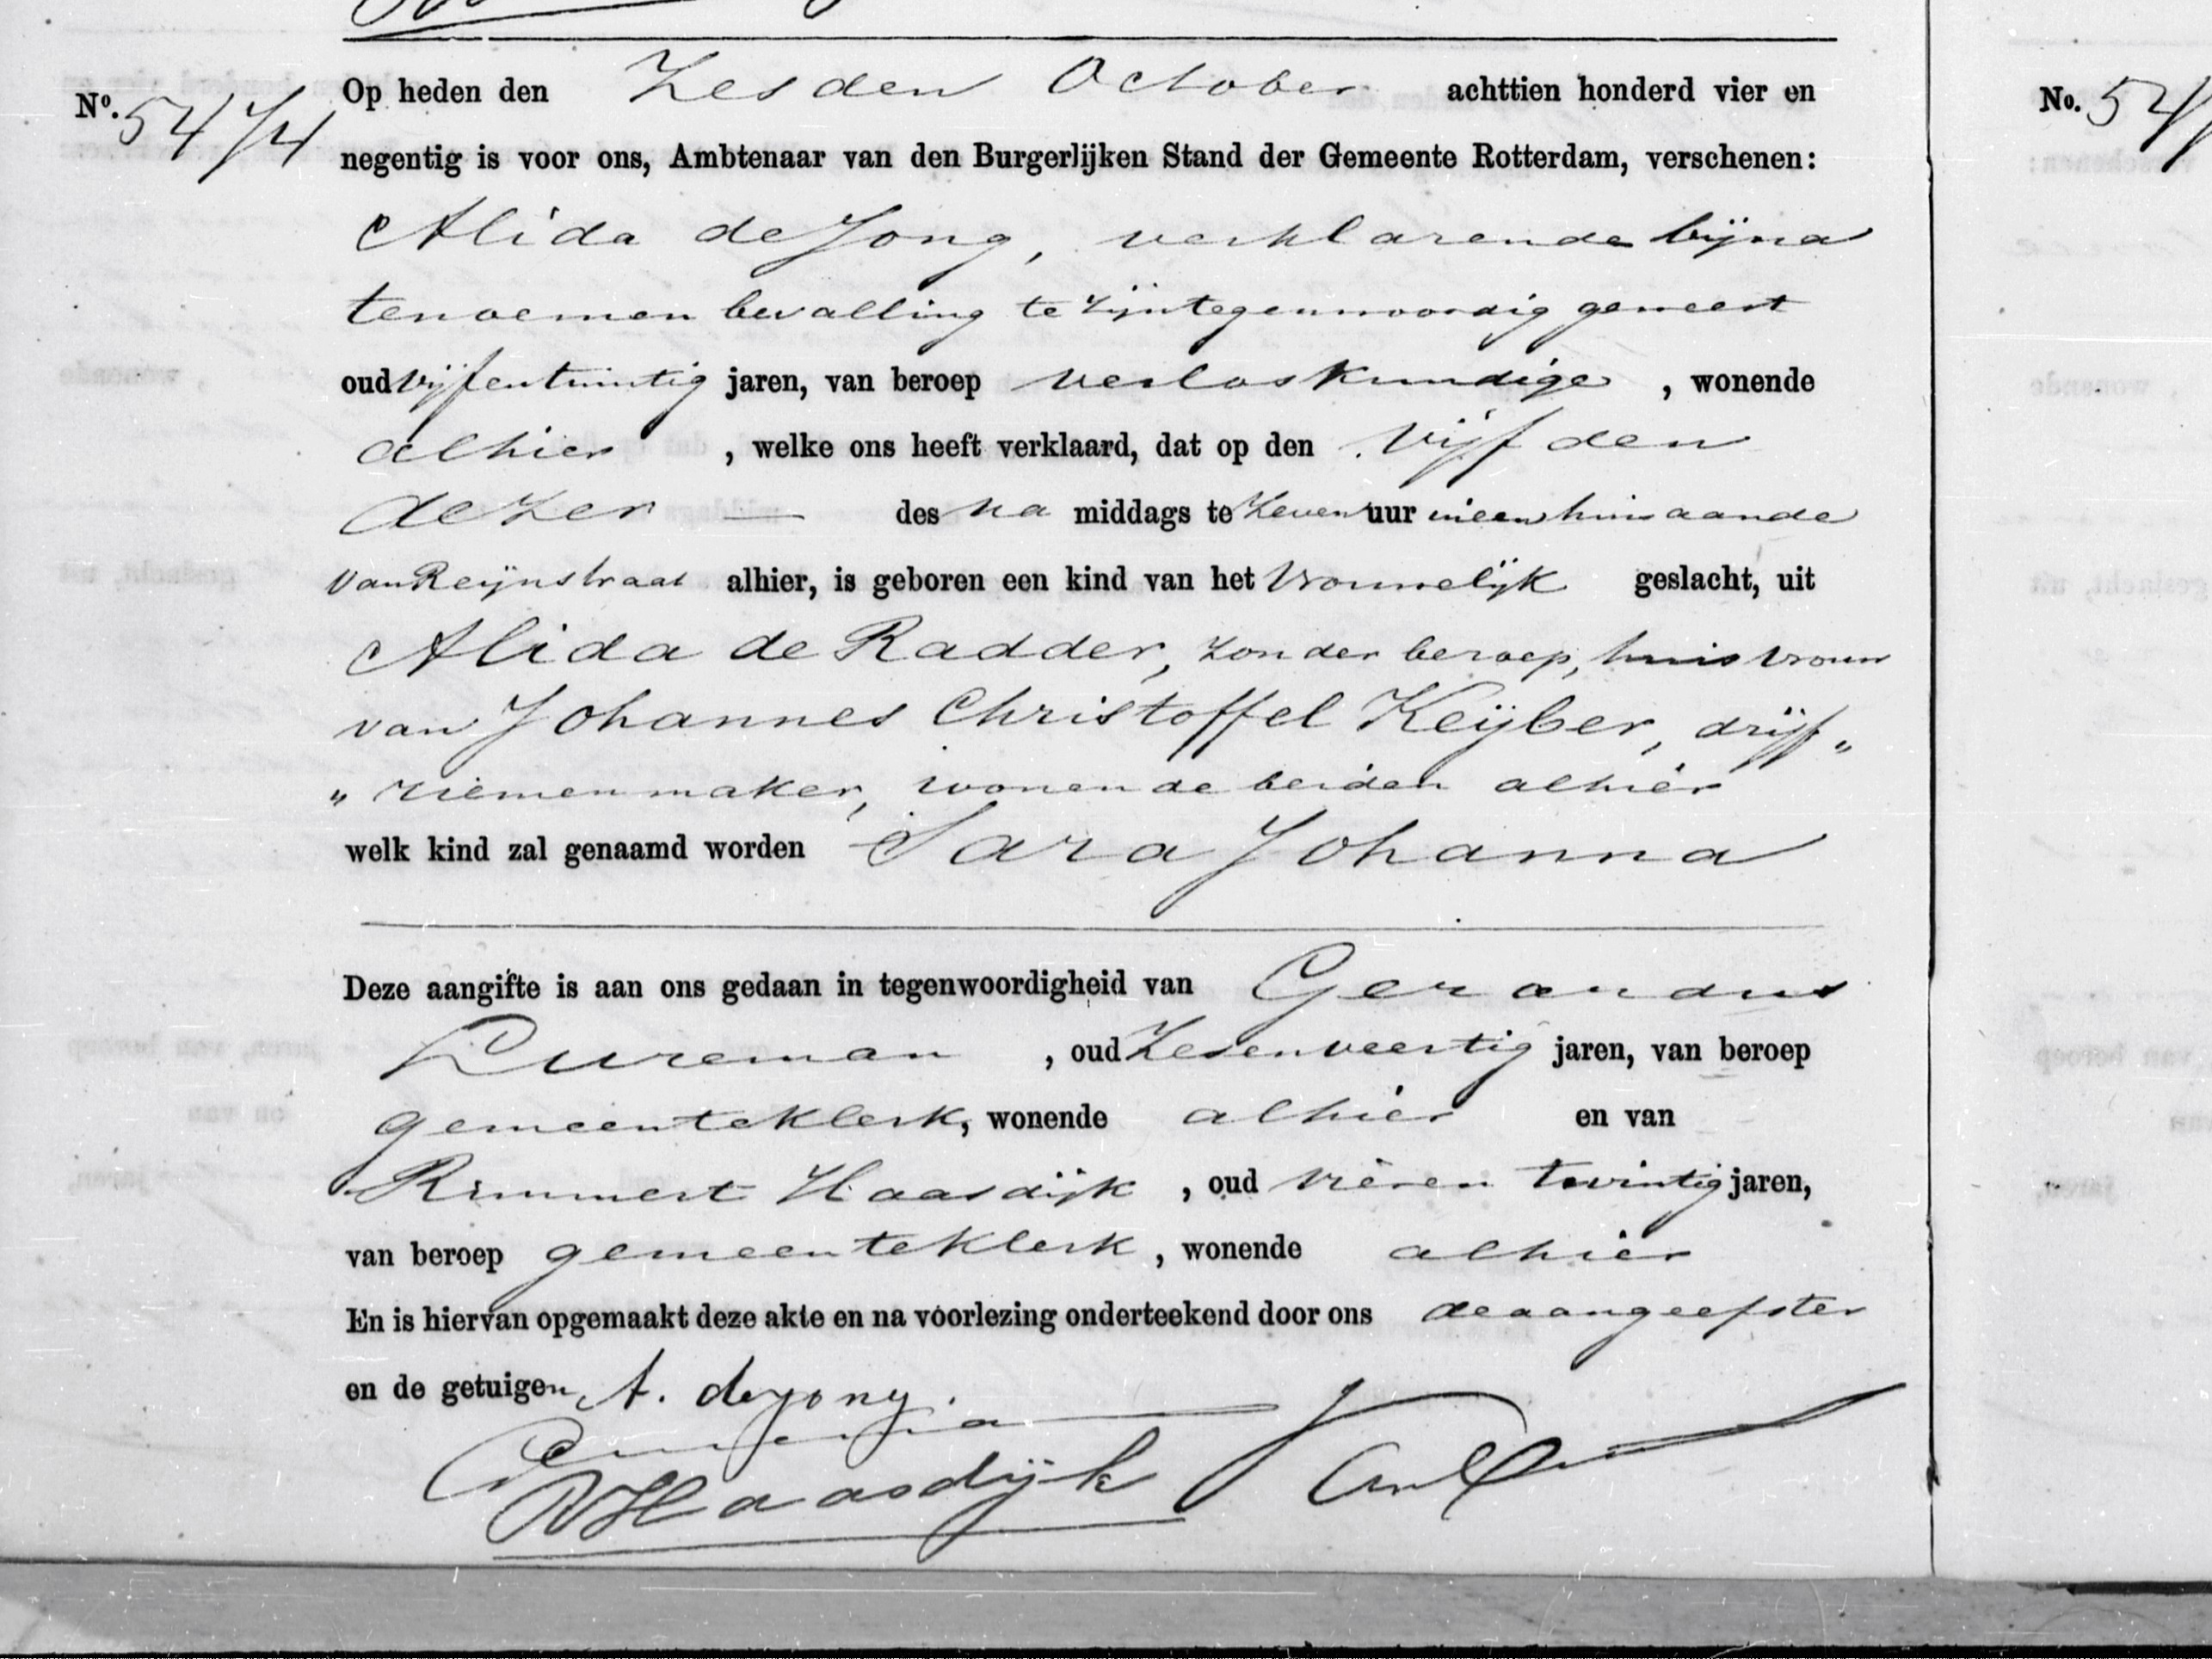 Nº. 5474
Op heden den Zesden October achttien honderd vier en
negentig is voor ons, Ambtenaar van den Burgerlijken Stand der Gemeente Rotterdam, verschenen:
Alida de Jong, verklarende bijna
tenoemen bevalling te zijn tegenwoordig geweest
oud vijfentwintig jaren, van beroep verloskundige, wonende
alhier, welke ons heeft verklaard, dat op den Vijfden
dezer — des na middags te Zeven uur in een huis aan de
Van Reijnstraat alhier, is geboren een kind van het Vrouwelijk geslacht, uit
Alida de Radder, zonder beroep, huisvrouw
van Johannes Christoffel Keijber, drijf„
„riemenmaker, wonende beiden alhier
welk kind zal genaamd worden Sara Johanna
Deze aangifte is aan ons gedaan in tegenwoordigheid van Gerardus
Bureman, oud Zesenveertig jaren, van beroep
gemeenteklerk, wonende alhier en van
Rimmert Haasdijk, oud vieren twintig jaren,
van beroep gemeenteklerk, wonende alhier
En is hiervan opgemaakt deze akte en na voorlezing onderteekend door ons de aangeefster
en de getuigen, A. de Jong.
RHaasdijk
No. 54